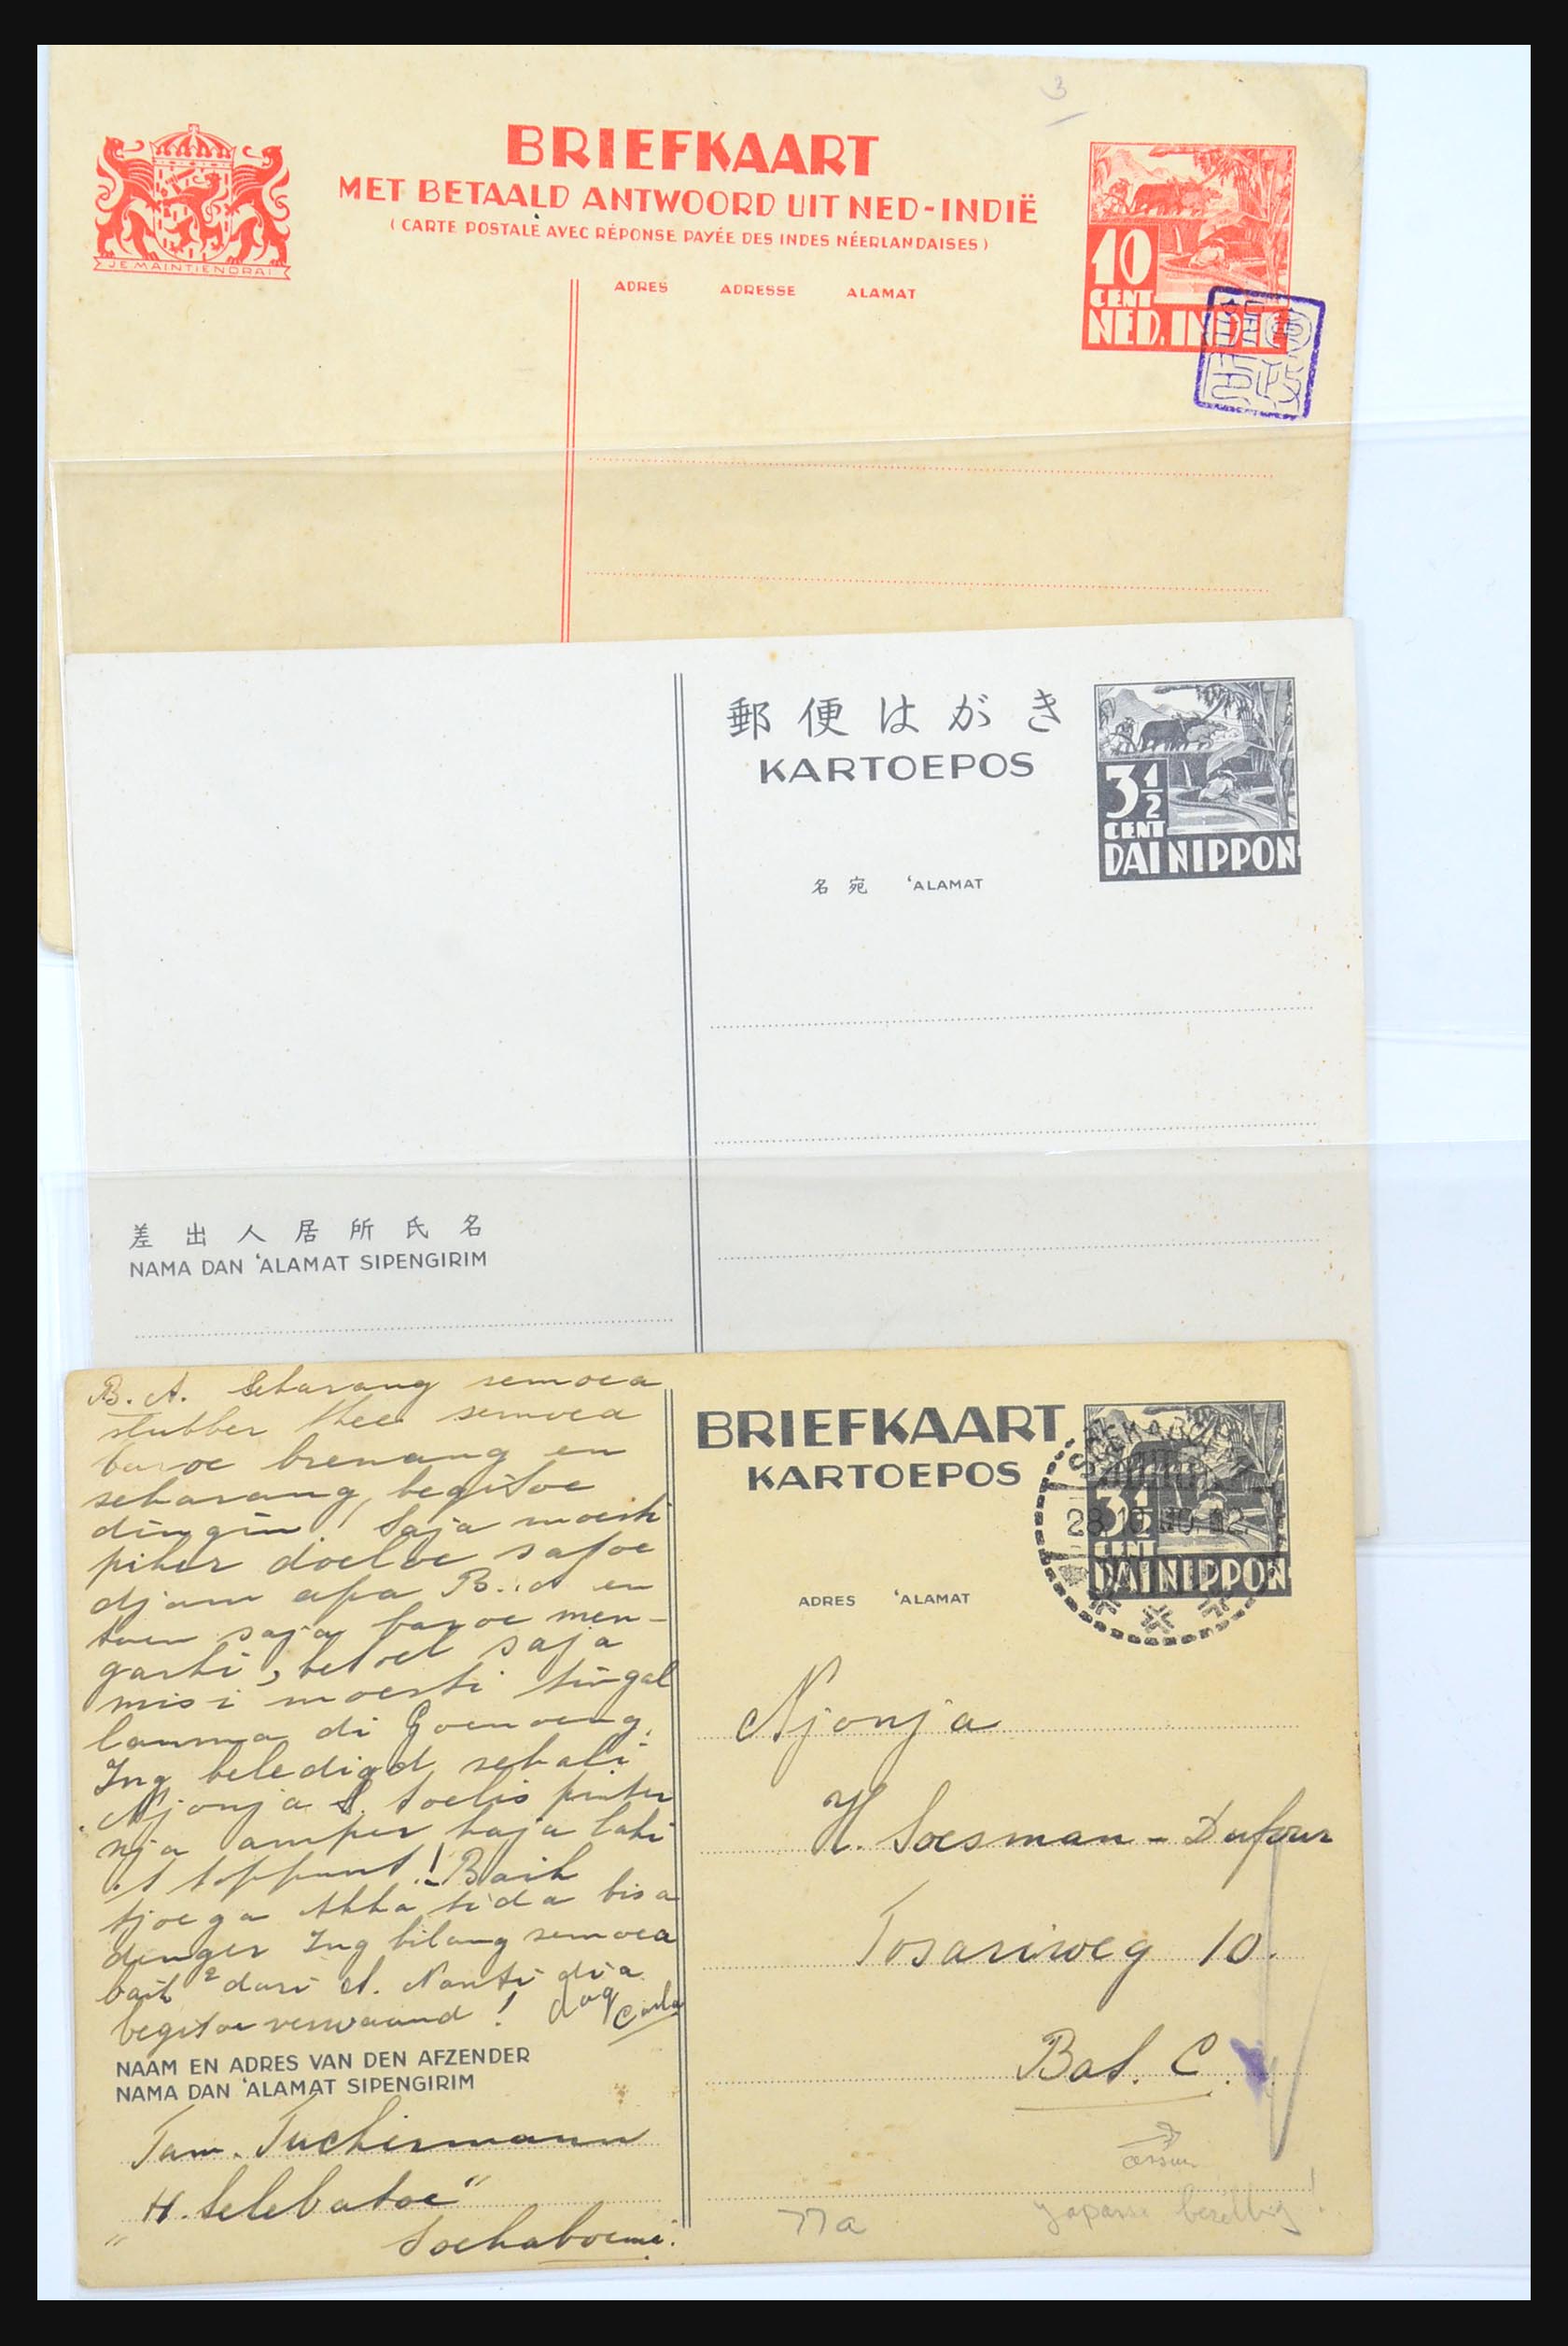 3
BRIEFKAART
MET BETAALD ANTWOORD UIT NED-INDIË
(CARTE POSTALE AVEC RÉPONSE PAYÉE DES INDES NÉERLANDAISES)
JE MAINTIENDRAI
ADRES ADRESSE ALAMAT
10
CENT
NED. INDIE
郵便はがき
KARTOEPOS
3½
CENT
DAI NIPPON
名宛 'ALAMAT
差出人居所氏名
NAMA DAN 'ALAMAT SIPENGIRIM
B. A. Sekarang semoea
slubber thee semoea
baroe brenang en
sekarang begitoe
dingin! Saja moesti
piker doeloe satoe
djam apa B. A en
toen saja baroe men-
garti, betoel saja
misi moesti tingal
lamma di Goenoeng.
Ing beledigd sekali
Njonja S. toelis pinter
nja amper kaja laki
't toppunt! Baik
tjoega Akka tida bisa
denger Ing bilang semoea
baik2 dari A. Nanti dia
begitoe verwaand! dag Carla
NAAM EN ADRES VAN DEN AFZENDER
NAMA DAN 'ALAMAT SIPENGIRIM
Fam. Tuchirmann
"H. Selebatoe"
Soekaboemi.
BRIEFKAART
KARTOEPOS
3½
CENT
DAI NIPPON
SOEKABOEMI
28.10
ADRES 'ALAMAT
Njonja
H. Soesman - Dufour
Tosariweg 10.
Bat. C.
censuur
77a
Japanse bezetting!